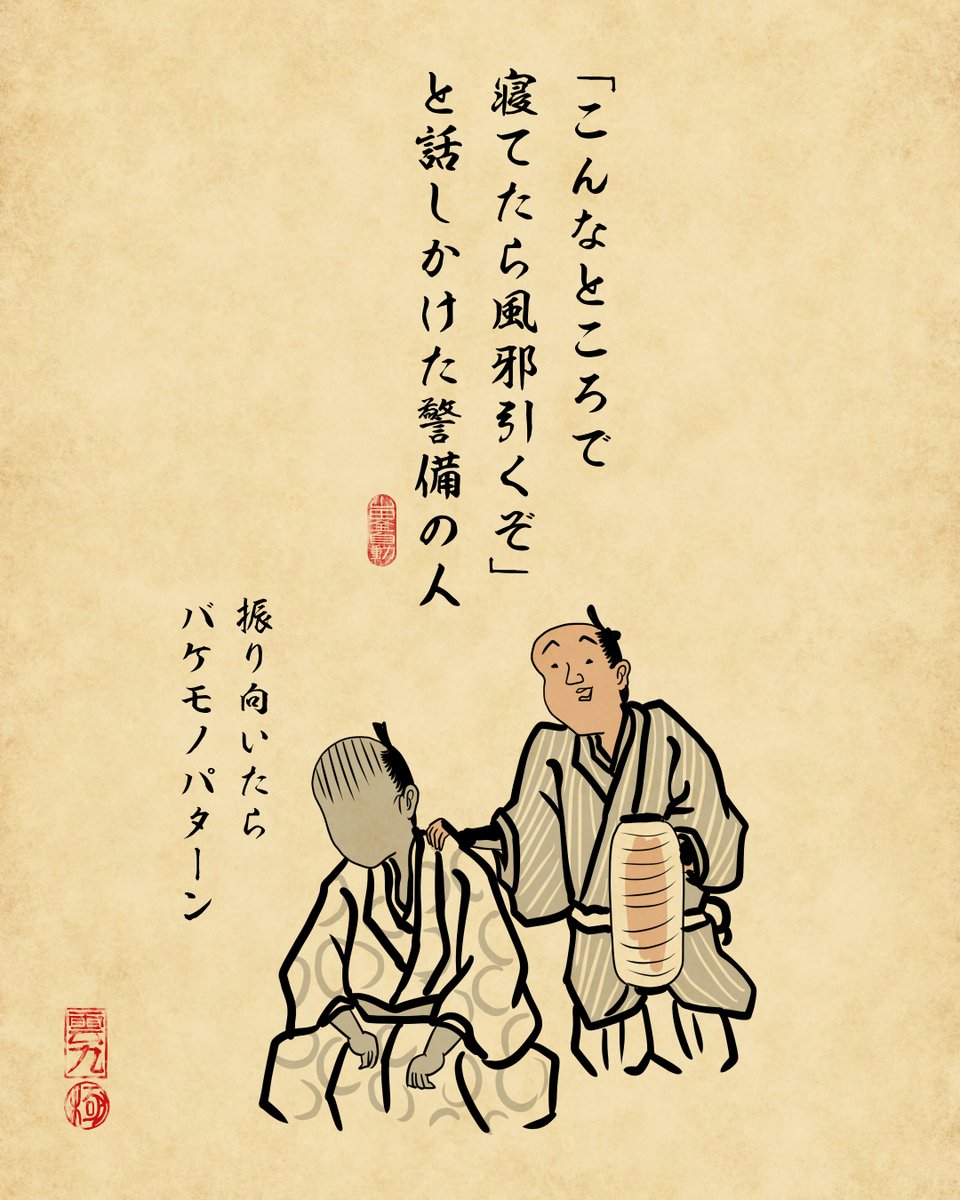 「こんなところで
寝てたら風邪引くぞ」
と話しかけた警備の人
振り向いたら
バケモノパターン